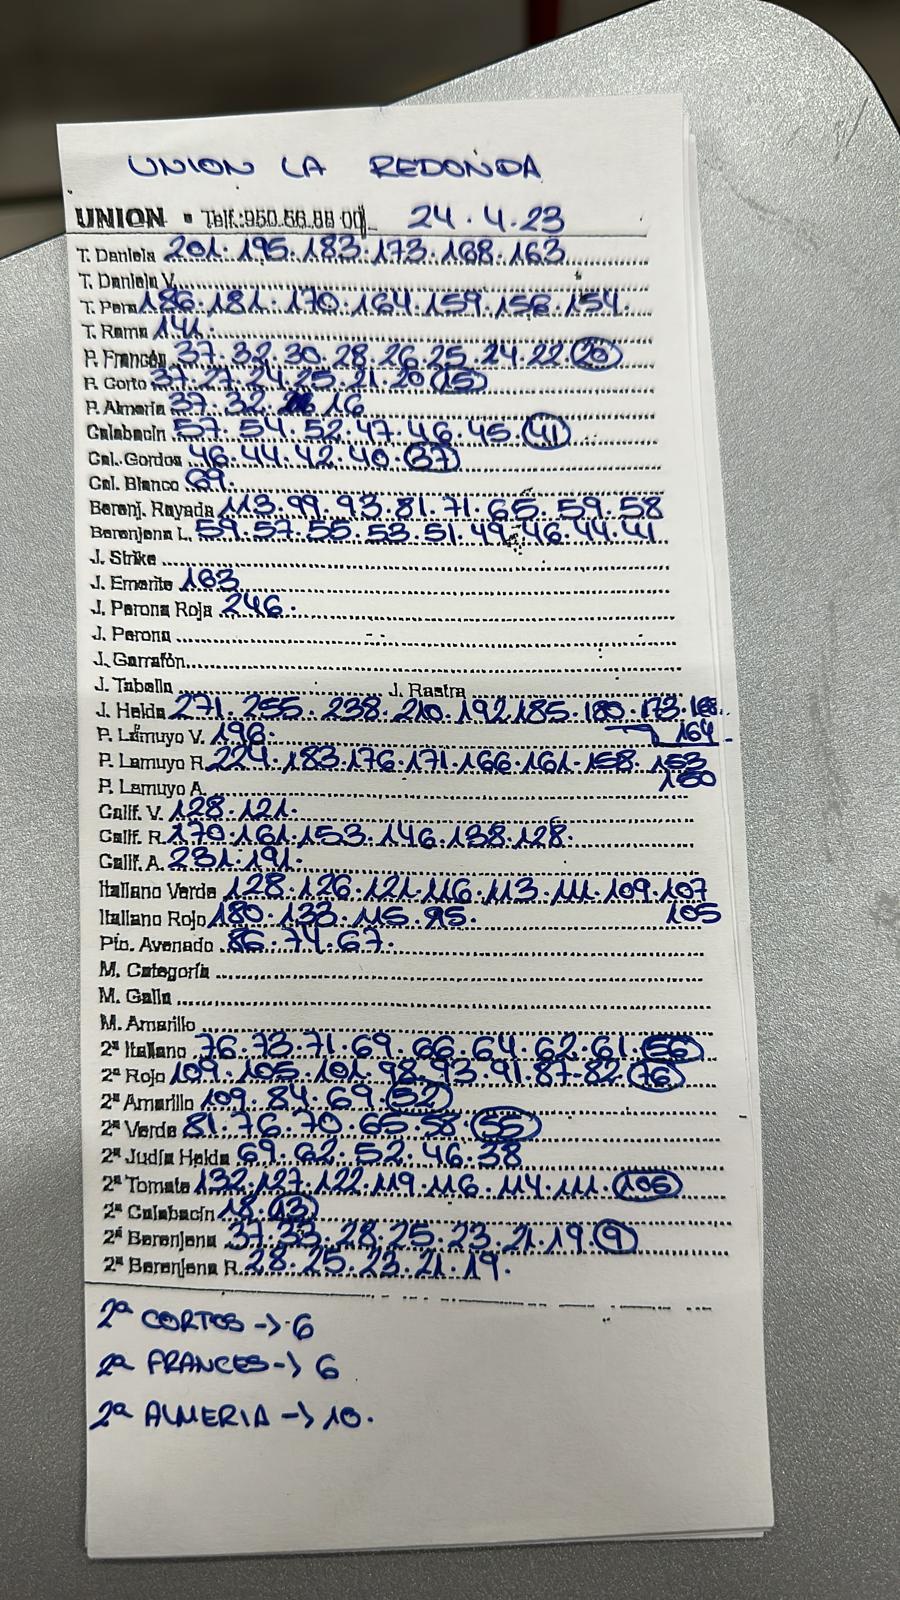 UNION LA REDONDA
UNION • Telf.:950.56.88 00 24.4.23
T. Daniela 201.195.183.173.168.163
T. Daniela V.
T. Pera 186.181.170.164.159.156.154.
T. Rama 141.
P. Francés 37.32.30.28.26.25.24.22.20
P. Corto 37.27.24.25.21.20.15
P. Almería 37.32. 16
Calabacín 57.54.52.47.46.45.41
Cal. Gordos 46.44.42.40.37
Cal. Blanco 69.
Berenj. Rayada 113.99.93.81.71.65.59.58
Berenjena L. 59.57.55.53.51.49.46.44.41
J. Strike
J. Emerite 163
J. Perona Roja 246.
J. Perona
J. Garrafón
J. Tabella J. Rastra
J. Helda 271.255.238.210.192.185.180.173.168.
P. Lamuyo V. 196. 164
P. Lamuyo R. 224.183.176.171.166.161.158.153
P. Lamuyo A. 150
Calif. V. 128.121.
Calif. R. 170.161.153.146.138.128.
Calif. A. 231.191.
Italiano Verde 128.126.121.116.113.111.109.107
Italiano Rojo 180.133.115.95. 105
Pto. Avenado 86.74.67.
M. Categoría
M. Galia
M. Amarillo
2ª Italiano 76.73.71.69.66.64.62.61.56
2ª Rojo 109.105.101.98.93.91.87.82.76
2ª Amarillo 109.84.69.52
2ª Verde 81.76.70.65.58.55
2ª Judía Helda 69.62.52.46.38
2ª Tomate 132.127.122.119.116.114.111.106
2ª Calabacín 18.13
2ª Berenjena 37.33.28.25.23.21.19.9
2ª Berenjena R. 28.25.23.21.19.
2ª CORTOS -> 6
2ª FRANCES -> 6
2ª ALMERIA -> 10.